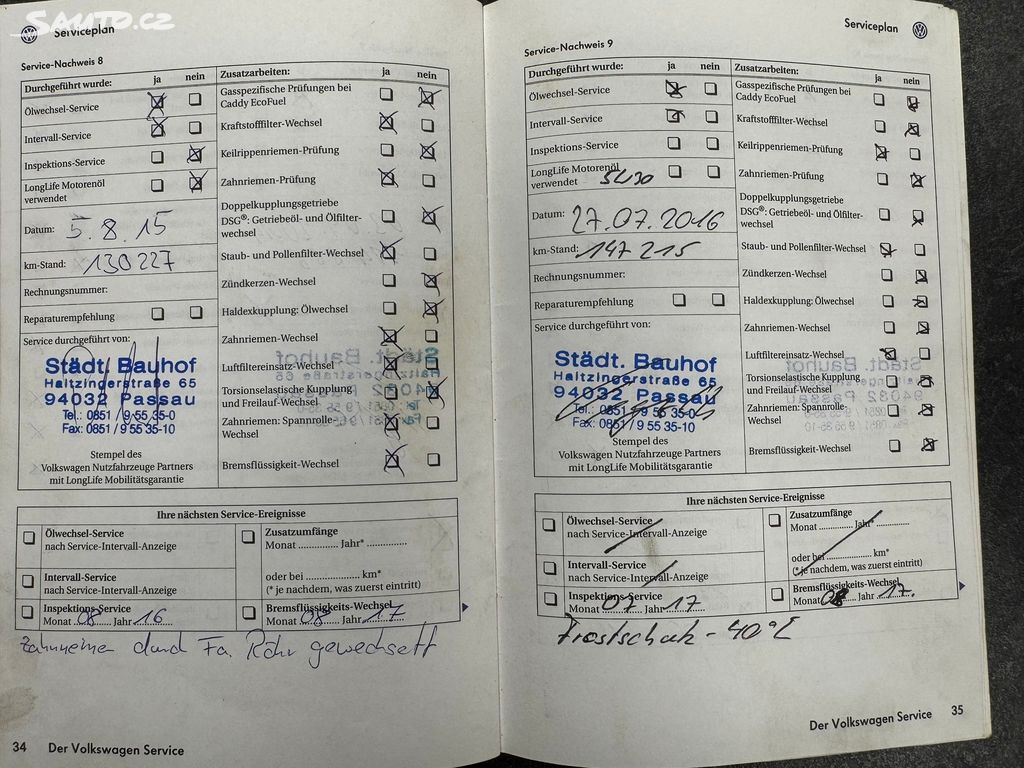 SAUTO.CZ
Serviceplan
Service-Nachweis 8
Durchgeführt wurde: ja nein
Ölwechsel-Service
Intervall-Service
Inspektions-Service
LongLife Motorenöl
verwendet
Datum: 5.8.15
km-Stand: 130227
Rechnungsnummer:
Reparaturempfehlung
Service durchgeführt von:
Städt. Bauhof
Haitzingerstraße 65
94032 Passau
Tel.: 0851 / 9 55 35-0
Fax: 0851 / 9 55 35-10
Stempel des
Volkswagen Nutzfahrzeuge Partners
mit LongLife Mobilitätsgarantie
Zusatzarbeiten: ja nein
Gasspezifische Prüfungen bei
Caddy EcoFuel
Kraftstofffilter-Wechsel
Keilrippenriemen-Prüfung
Zahnriemen-Prüfung
Doppelkupplungsgetriebe
DSG®: Getriebeöl- und Ölfilter-
wechsel
Staub- und Pollenfilter-Wechsel
Zündkerzen-Wechsel
Haldexkupplung: Ölwechsel
Zahnriemen-Wechsel
Luftfiltereinsatz-Wechsel
Torsionselastische Kupplung
und Freilauf-Wechsel
Zahnriemen: Spannrolle-
Wechsel
Bremsflüssigkeit-Wechsel
Ihre nächsten Service-Ereignisse
Ölwechsel-Service
nach Service-Intervall-Anzeige
Intervall-Service
nach Service-Intervall-Anzeige
Inspektions-Service
Monat 08 Jahr 16
Zusatzumfänge
Monat .............. Jahr* ..............
oder bei ........................ km*
(* je nachdem, was zuerst eintritt)
Bremsflüssigkeits-Wechsel
Monat 08 Jahr 17
Zahnriemen durch Fa. Röhr gewechselt
34 Der Volkswagen Service
Serviceplan
Service-Nachweis 9
Durchgeführt wurde: ja nein
Ölwechsel-Service
Intervall-Service
Inspektions-Service
LongLife Motorenöl
verwendet 5W30
Datum: 27.07.2016
km-Stand: 147215
Rechnungsnummer:
Reparaturempfehlung
Service durchgeführt von:
Städt. Bauhof
Haitzingerstraße 65
94032 Passau
Tel.: 0851 / 9 55 35-0
Fax: 0851 / 9 55 35-10
Stempel des
Volkswagen Nutzfahrzeuge Partners
mit LongLife Mobilitätsgarantie
Zusatzarbeiten: ja nein
Gasspezifische Prüfungen bei
Caddy EcoFuel
Kraftstofffilter-Wechsel
Keilrippenriemen-Prüfung
Zahnriemen-Prüfung
Doppelkupplungsgetriebe
DSG®: Getriebeöl- und Ölfilter-
wechsel
Staub- und Pollenfilter-Wechsel
Zündkerzen-Wechsel
Haldexkupplung: Ölwechsel
Zahnriemen-Wechsel
Luftfiltereinsatz-Wechsel
Torsionselastische Kupplung
und Freilauf-Wechsel
Zahnriemen: Spannrolle-
Wechsel
Bremsflüssigkeit-Wechsel
Ihre nächsten Service-Ereignisse
Ölwechsel-Service
nach Service-Intervall-Anzeige
Intervall-Service
nach Service-Intervall-Anzeige
Inspektions-Service
Monat 07 Jahr 17
Zusatzumfänge
Monat ............ Jahr* ............
oder bei ........................ km*
(* je nachdem, was zuerst eintritt)
Bremsflüssigkeits-Wechsel
Monat 08 Jahr 17.
Frostschutz -40°C
Der Volkswagen Service 35